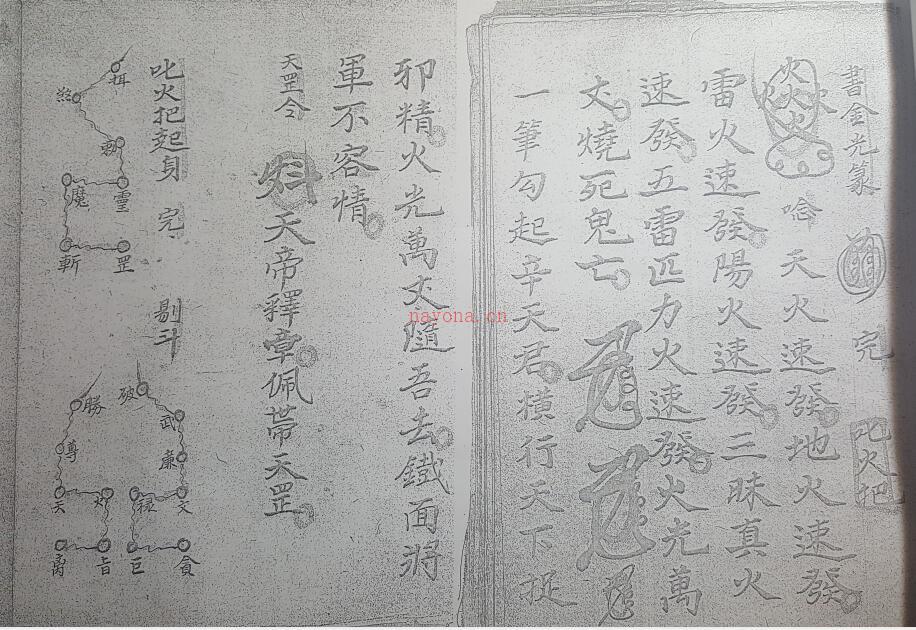 書金光篆 完 叱火把
火火火火 唸天火速發地火速發
雷火速發陽火速發三昧真火
速發五雷匹力火速發火光萬
丈燒死鬼亡
一筆勾起辛天君橫行天下捉
邪精火光萬丈隨吾去鐵面將
軍不容情
天罡令 天帝釋章佩帶天罡
叱火把起身 完 剔斗
魔靈
斬罡
破
勝武
尊廉
天祿文
巨貪
nayona.cn